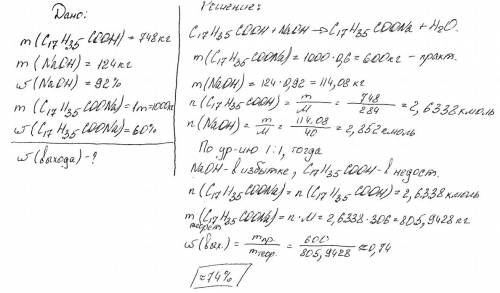 Дано:
m(C₁₇H₃₅COOH)=748кг
m(NaOH)=124кг
ω(NaOH)=92%
m(C₁₇H₃₅COONa)=1т=1000кг
ω(C₁₇H₃₅COONa)=60%
ω(выхода)-?
Решение:
C₁₇H₃₅COOH+NaOH→C₁₇H₃₅COONa+H₂O.
m(C₁₇H₃₅COONa)=1000·0,6=600кг- практ.
m(NaOH)=124·0,92=114,08кг
n(C₁₇H₃₅COOH)=m/M=748/284=2,6338кмоль
n(NaOH)=m/M=114,08/40=2,852кмоль
По ур-ию 1:1, тогда
NaOH-в избытке, C₁₇H₃₅COOH-в недост.
n(C₁₇H₃₅COONa)=n(C₁₇H₃₅COOH)=2,6338кмоль
mтеорет(C₁₇H₃₅COONa)=n·M=2,6338·306=805,9428кг
ω(вых.)=mпр./mтеор.=600/805,9428≈0,74
≈74%